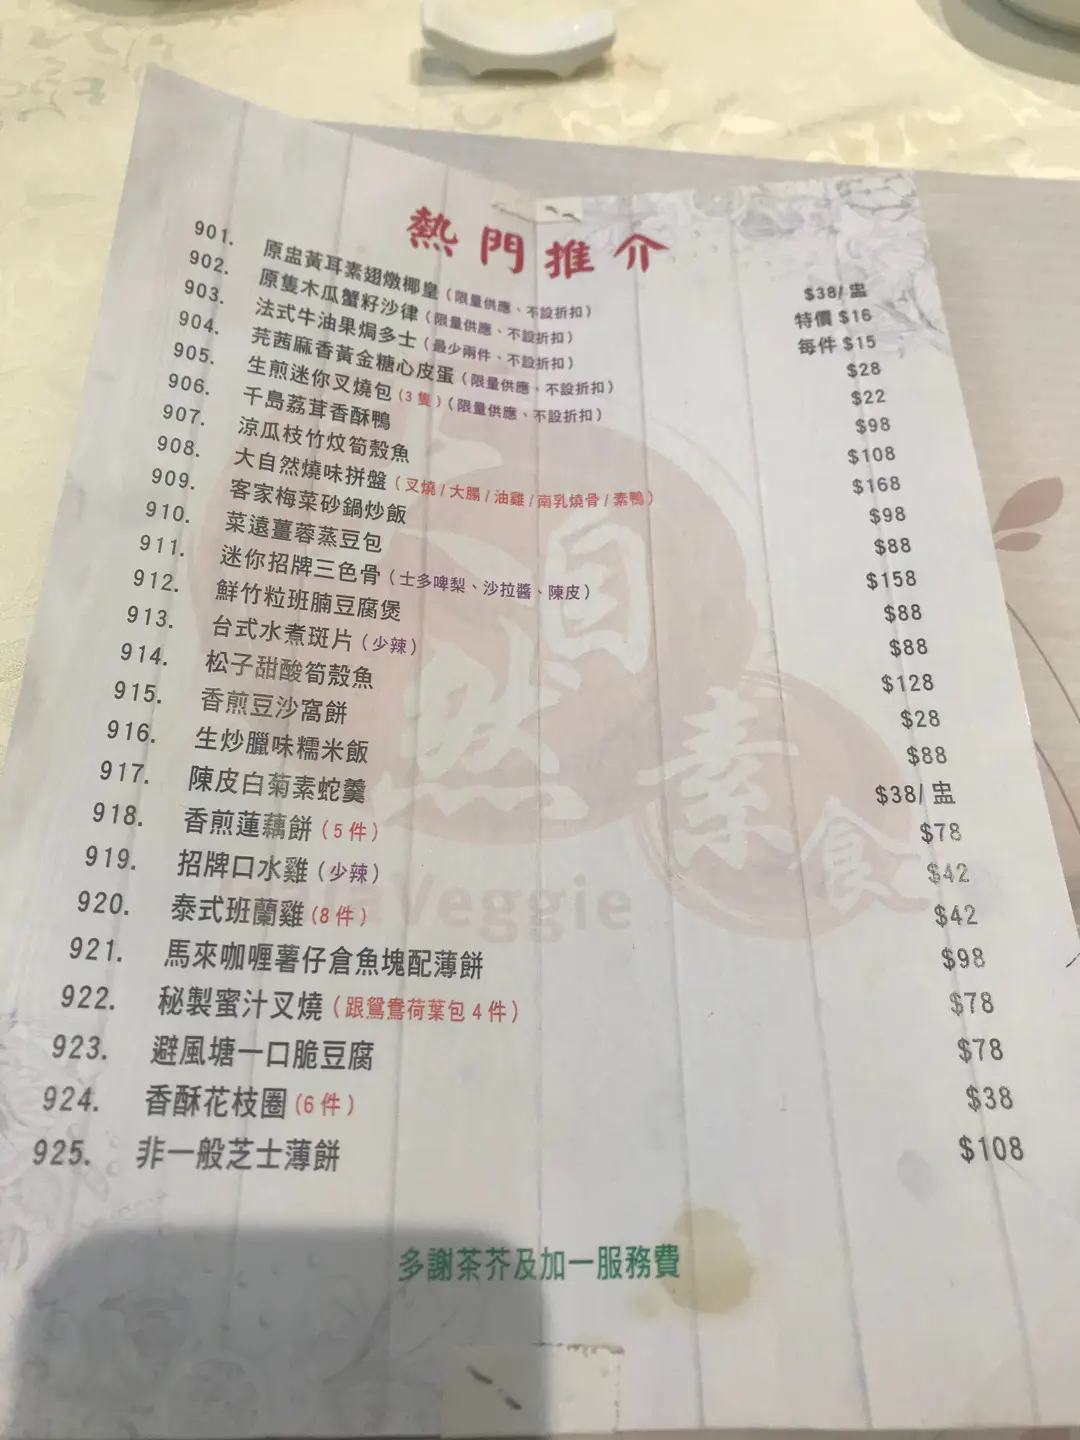 熱門推介
901. 原盅黃耳素翅燉椰皇（限量供應、不設折扣） $38/盅
902. 原隻木瓜蟹籽沙律（限量供應、不設折扣） 特價 $16
903. 法式牛油果焗多士（最少兩件、不設折扣） 每件 $15
904. 芫茜麻香黃金糖心皮蛋（限量供應、不設折扣） $28
905. 生煎迷你叉燒包（3隻）（限量供應、不設折扣） $22
906. 千島荔茸香酥鴨 $98
907. 涼瓜枝竹炆筍殼魚 $108
908. 大自然燒味拼盤（叉燒/大腸/油雞/南乳燒骨/素鴨） $168
909. 客家梅菜砂鍋炒飯 $98
910. 菜遠薑蓉蒸豆包 $88
911. 迷你招牌三色骨（士多啤梨、沙拉醬、陳皮） $158
912. 鮮竹粒班腩豆腐煲 $88
913. 台式水煮斑片（少辣） $88
914. 松子甜酸筍殼魚 $128
915. 香煎豆沙窩餅 $28
916. 生炒臘味糯米飯 $88
917. 陳皮白菊素蛇羹 $38/盅
918. 香煎蓮藕餅（5件） $78
919. 招牌口水雞（少辣） $42
920. 泰式班蘭雞（8件） $42
921. 馬來咖喱薯仔倉魚塊配薄餅 $98
922. 秘製蜜汁叉燒（跟鴛鴦荷葉包4件） $78
923. 避風塘一口脆豆腐 $78
924. 香酥花枝圈（6件） $38
925. 非一般芝士薄餅 $108
大自然素食
Veggie
多謝茶芥及加一服務費